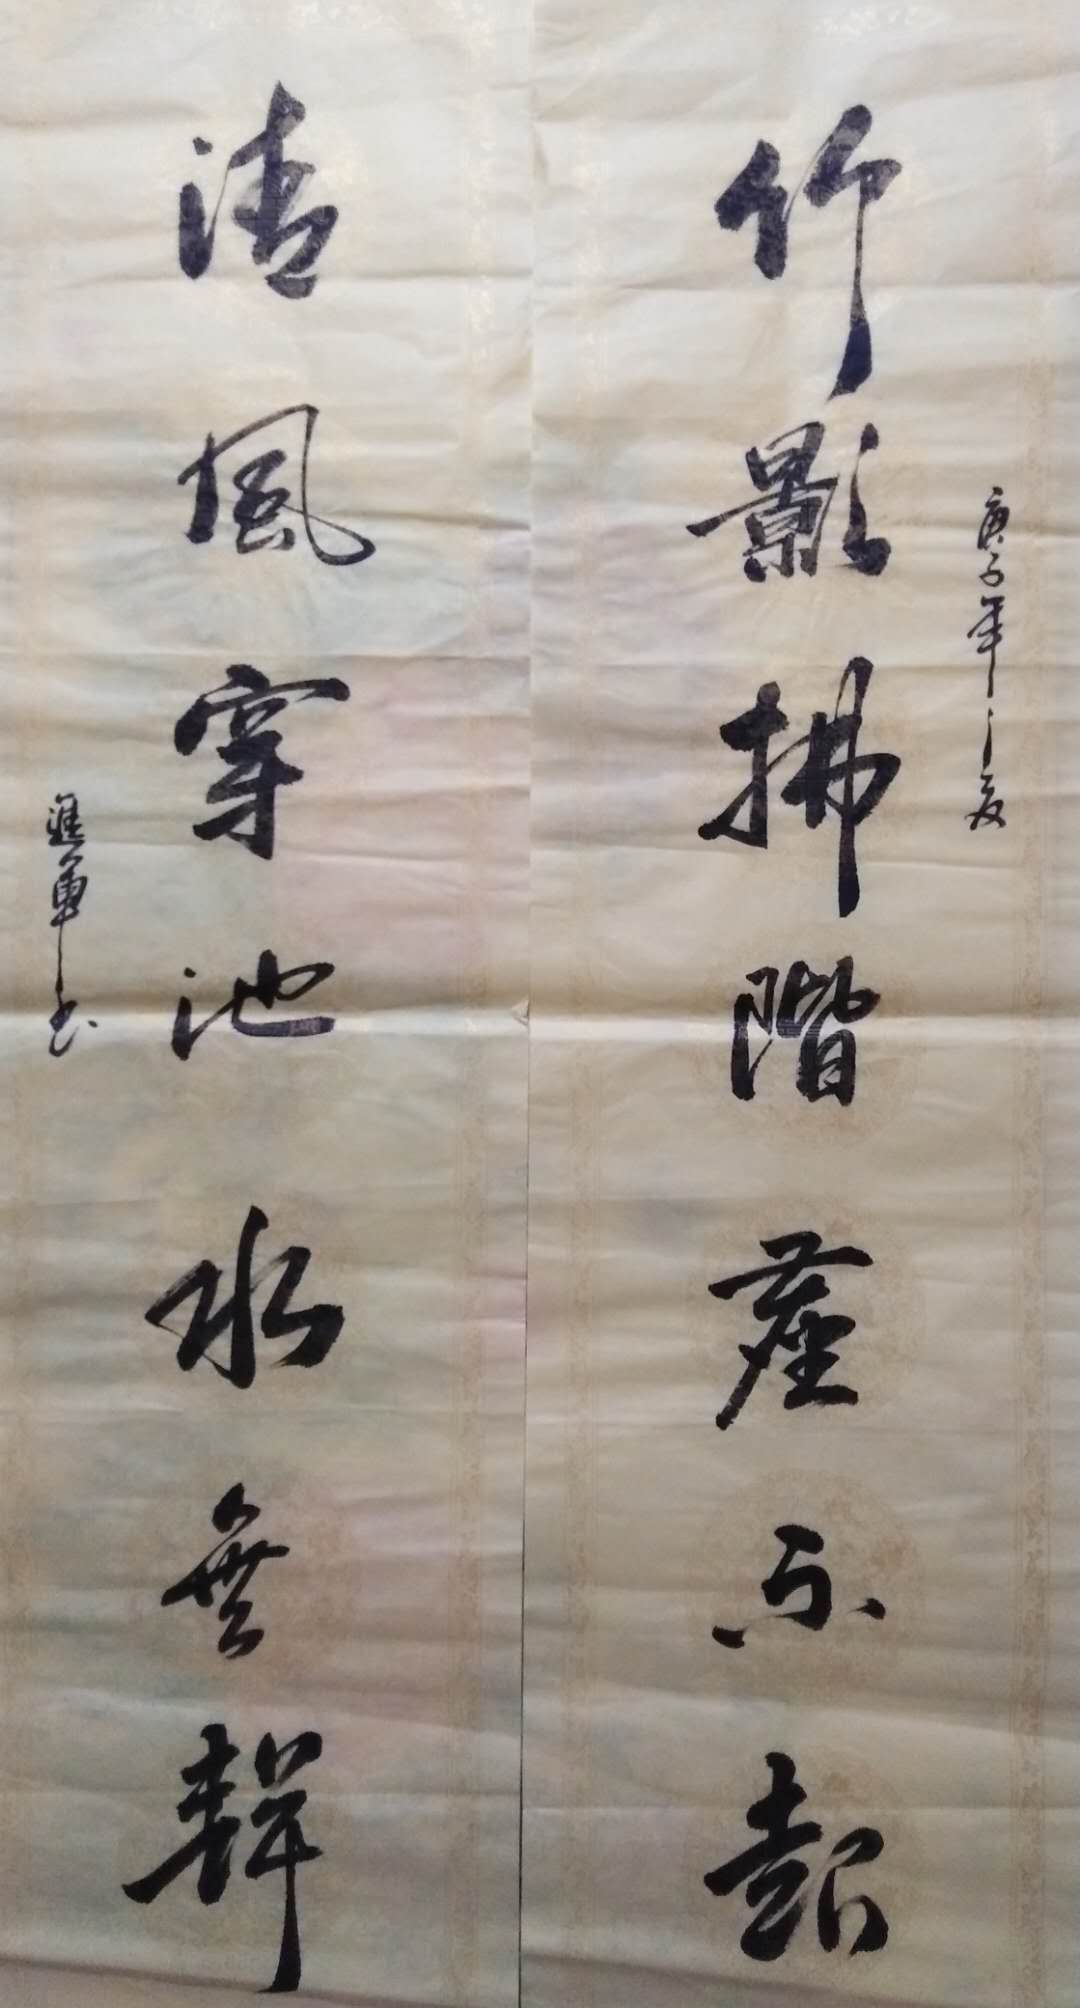 庚子年之夏
竹影拂階塵不起
清風穿池水無聲
進軍書